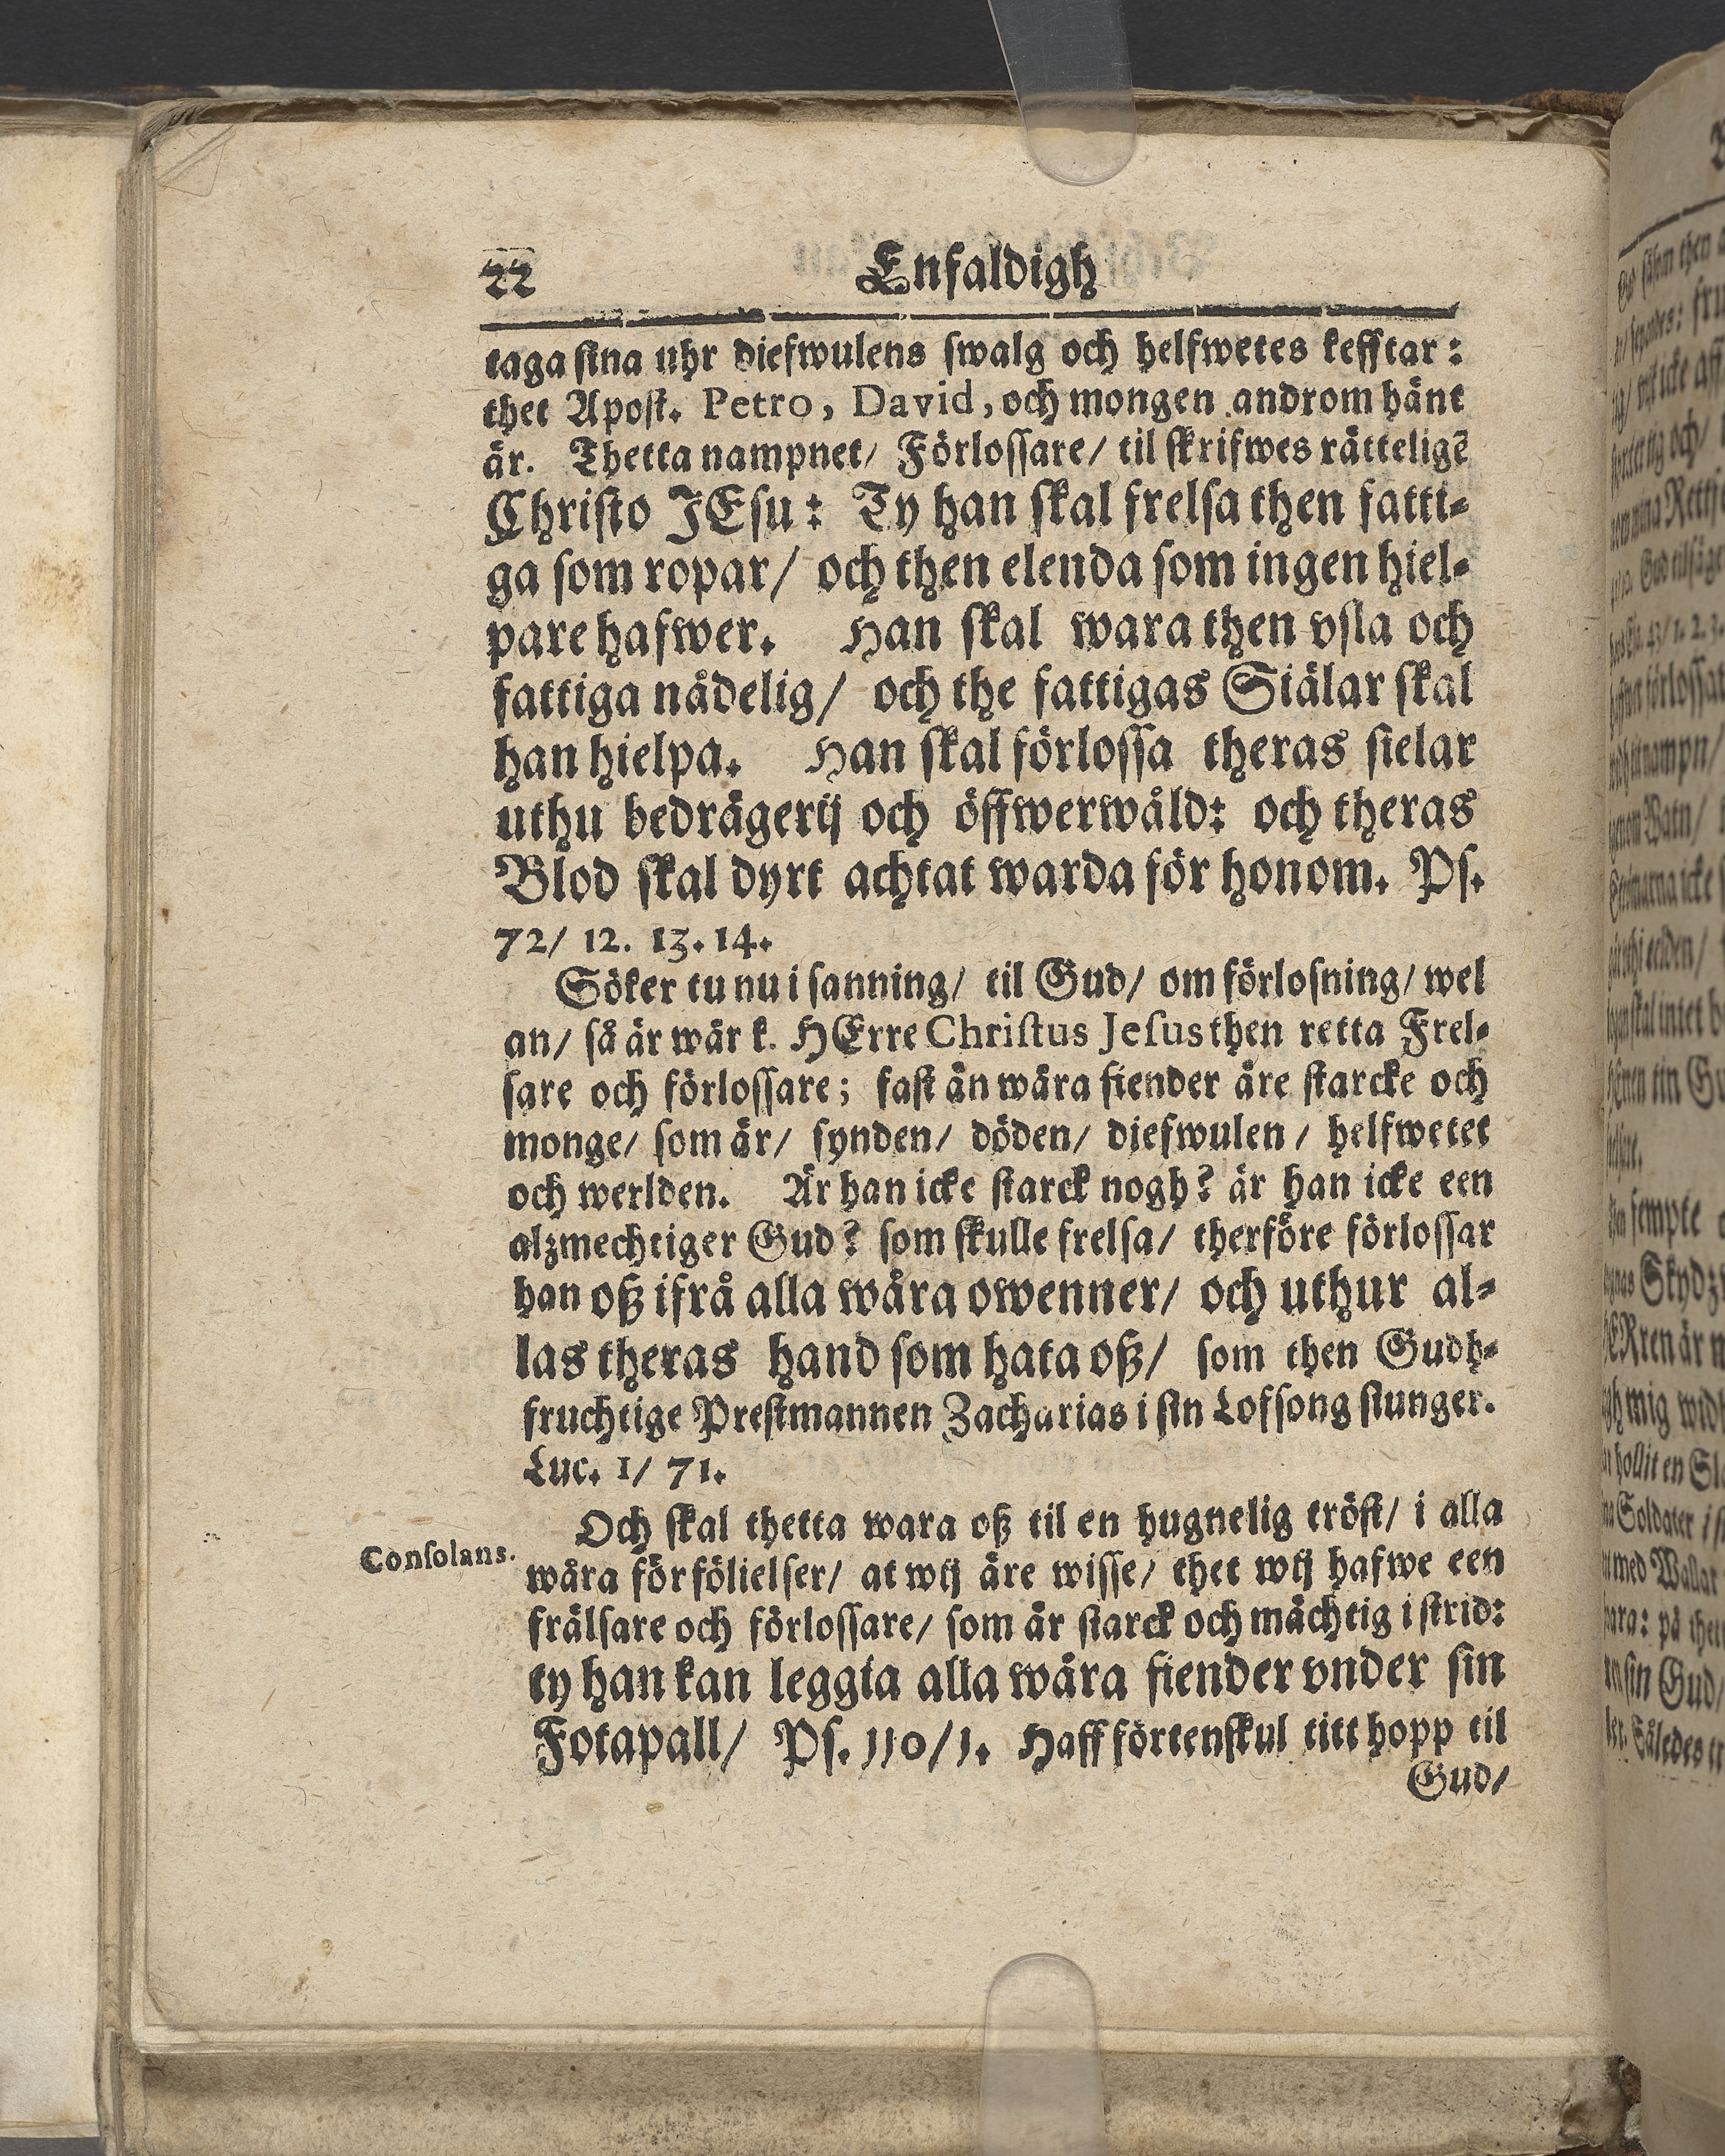 22 Enfaldigh
taga sina uhr diefwulens swalg och helfwetes kefftar:
thet Apost. Petro, David, och mongen androm hänt
är. Thetta nampnet/ Förlossare/ til skrifwes rätteligē
Christo JEsu: Ty han skal frelsa then fatti-
ga som ropar/ och then elenda som ingen hiel-
pare hafwer. Han skal wara then vsla och
fattiga nådelig/ och the fattigas Siälar skal
han hielpa. Han skal förlossa theras sielar
uthu bedrägerij och öffwerwåld: och theras
Blod skal dyrt achtat warda för honom. Ps.
72/ 12. 13. 14.
Söker tu nu i sanning/ til Gud/ om förlosning/ wel
an/ så är wår k. HErre Christus Jesus then retta Frel-
sare och förlossare; fast än wåra fiender äre starcke och
monge/ som är/ synden/ döden/ diefwulen/ helfwetet
och werlden. Är han icke starck nogh? är han icke een
alzmechtiger Gud? som skulle frelsa/ therföre förlossar
han oß ifrå alla wåra owenner/ och uthur al-
las theras hand som hata oß/ som then Gudh-
fruchtige Prestmannen Zacharias i sin Lofsong siunger.
Luc. 1/ 71.
Och skal thetta wara oß til en hugnelig tröst/ i alla
Consolans.
wåra förfölielser/ at wij äre wisse/ thet wij hafwe een
frälsare och förlossare/ som är starck och mächtig i strid:
ty han kan leggia alla wåra fiender vnder sin
Fotapall/ Ps. 110/1. Haff förtenskul titt hopp til
Gud/